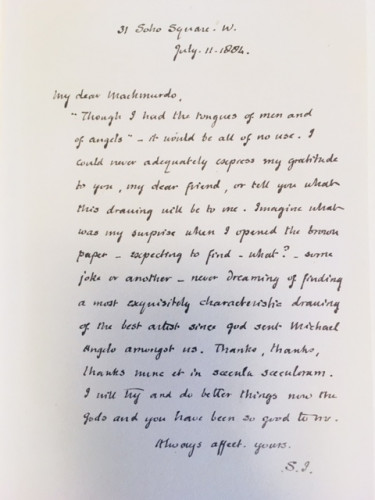 31 Soho Square. W.
July. 11. 1884.
My dear Mackmurdo,
"Though I had the tongues of men and
of angels" – it would be all of no use. I
could never adequately express my gratitude
to you, my dear friend, or tell you what
this drawing will be to me. Imagine what
was my surprise when I opened the brown
paper – expecting to find – what? – some
joke or another – never dreaming of finding
a most exquisitely characteristic drawing
of the best artist since god sent Michael
Angelo amongst us. Thanks, thanks,
thanks nunc et in sæcula sæculoram.
I will try and do better things now the
gods and you have been so good to me.
Always affect. yours.
S.I.